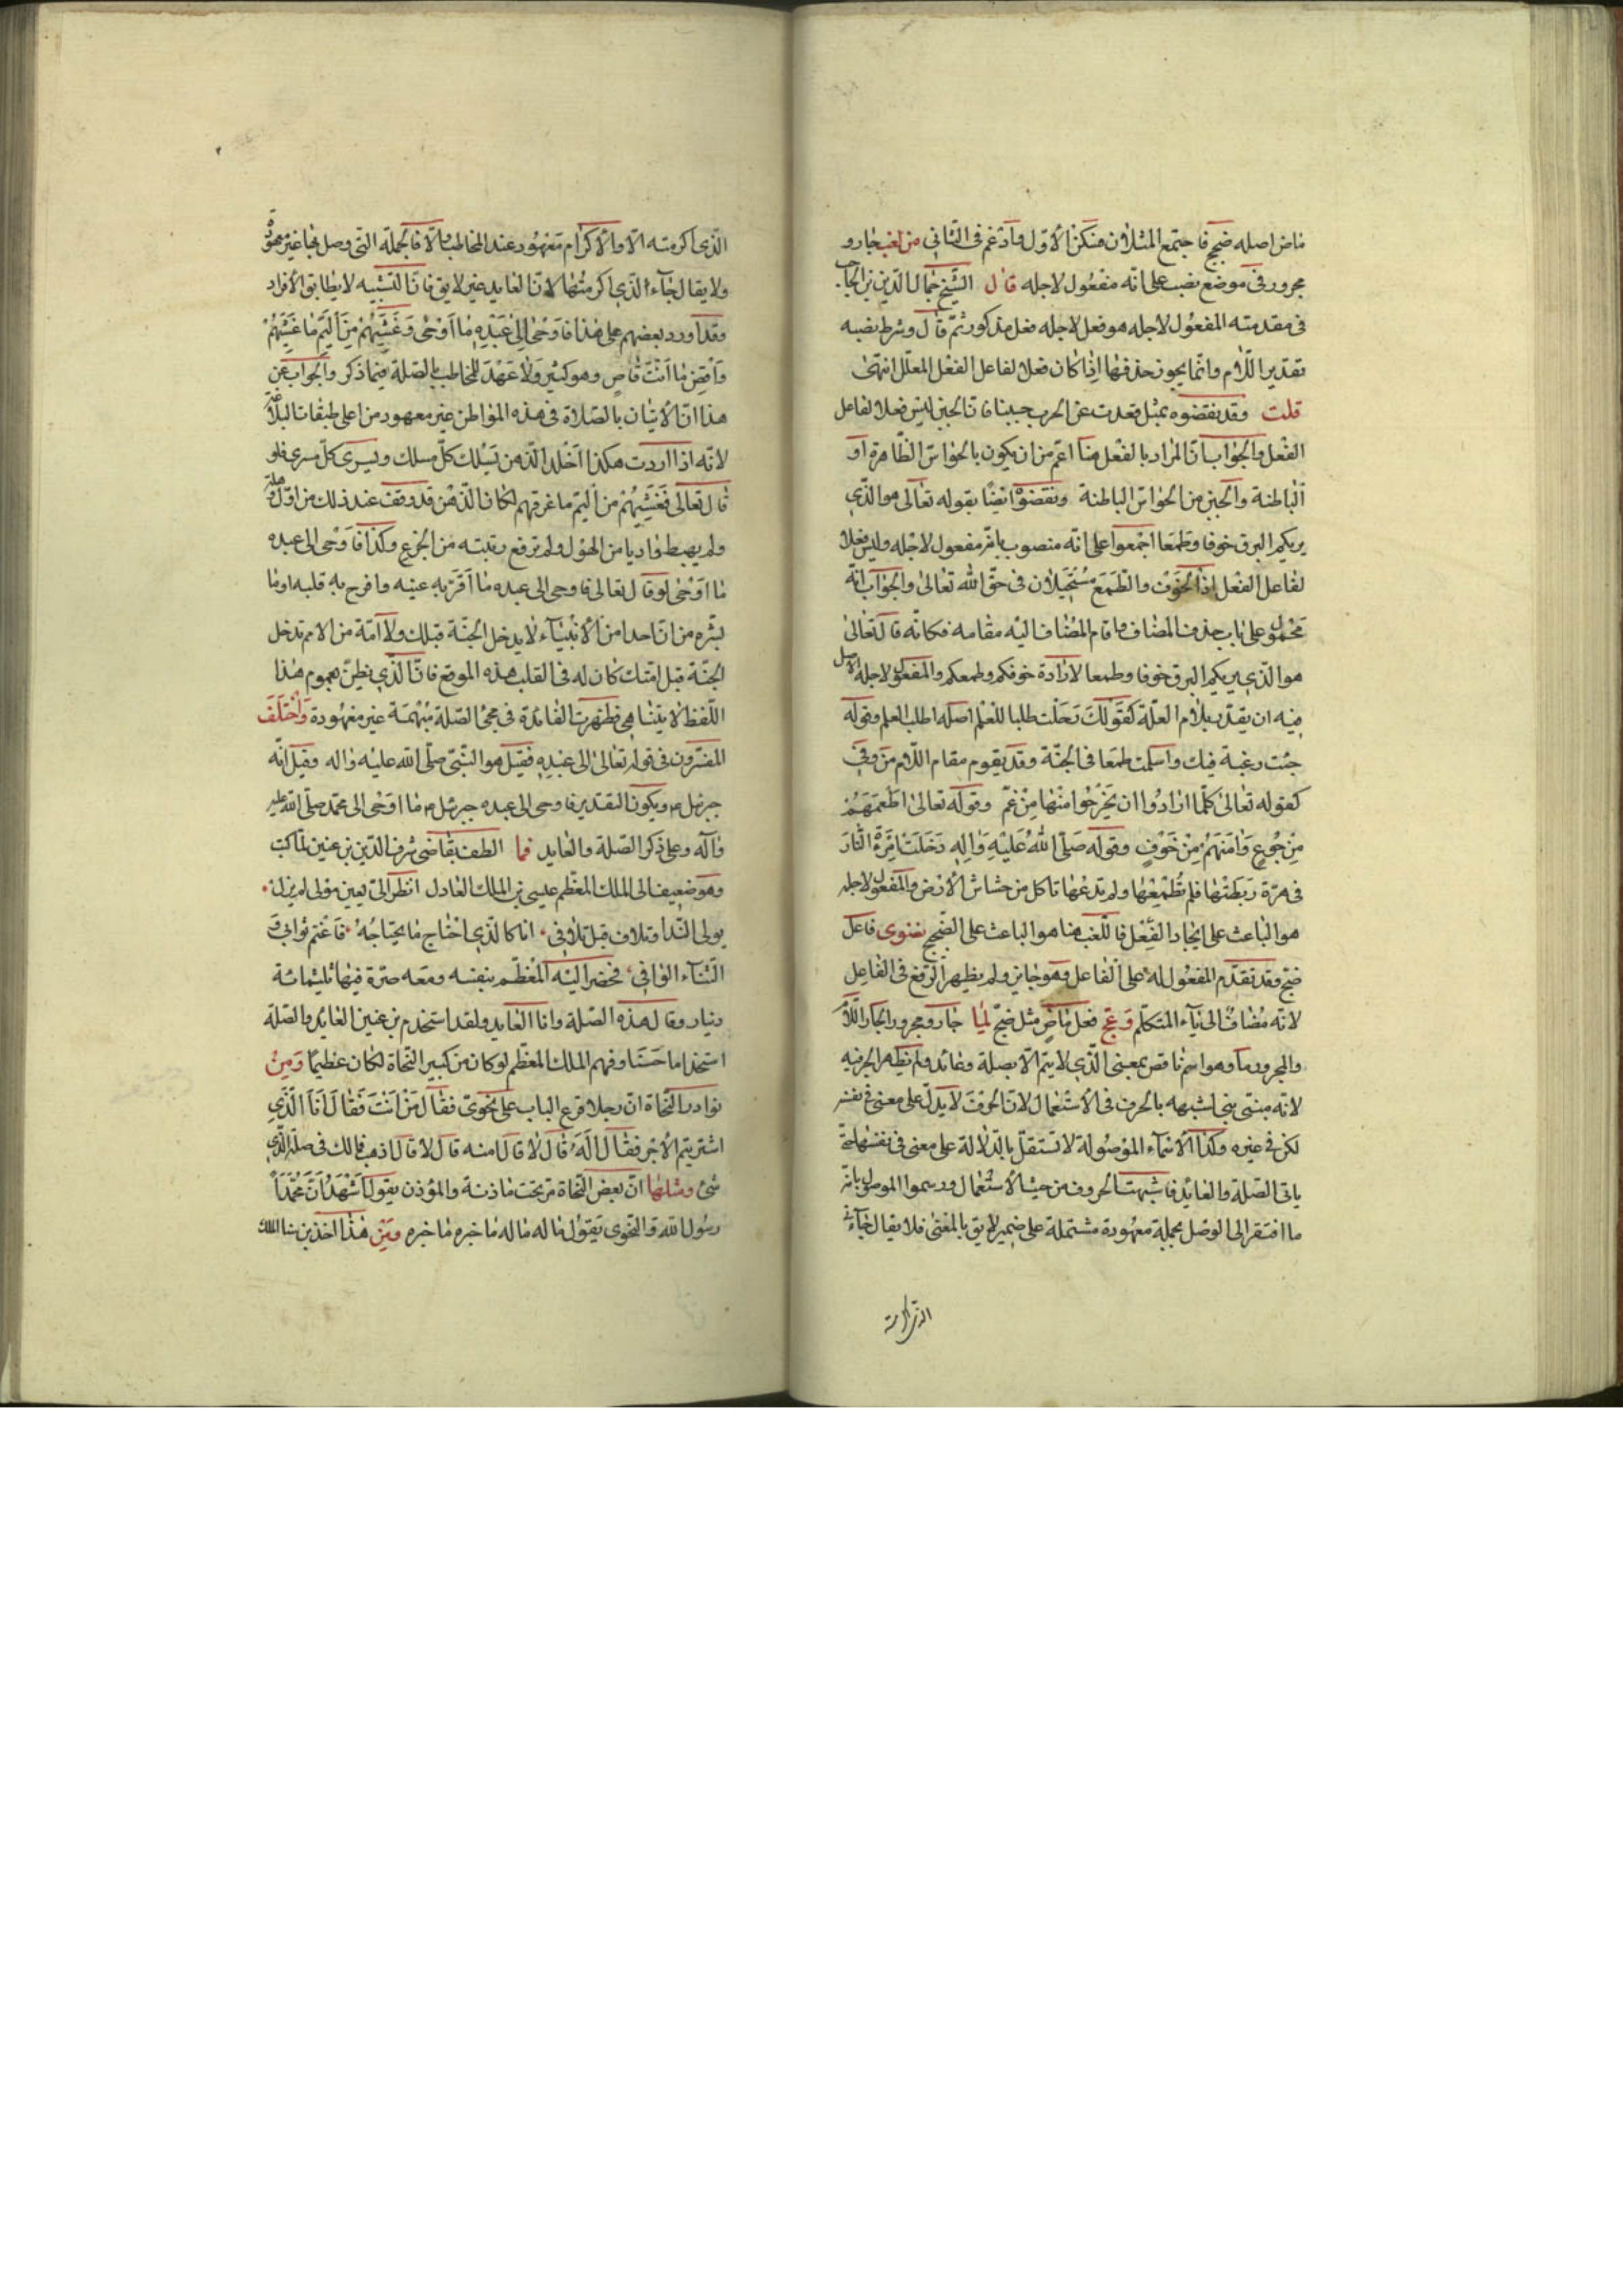 ماض اصله ضجج فاجتمع المثلان فسكن الاوّل وادغم فى الثانى من لغب جار و
مجرور فى موضع نصب على انّه مفعول لاجله قال الشيخ جمال الدّين بن الحاجب
فى مقدمته المفعول لاجله هو فعل لاجله فعل مذكور ثمّ قال وشرط نصبه
تقدير اللّام وانّما يجوز حذفها اذا كان فعلا لفاعل الفعل المعلّل انتهى
قلت وقد نقضوه بمثل قعدت عن الحرب جبنا فانّ الجبن ليس فعلا لفاعل
الفعل والجواب انّ المراد بالفعل هنا اعمّ من ان يكون بالحواسّ الظّاهرة او
الباطنة والجبن من الحواسّ الباطنة ونقضوه ايضًا بقوله تعالى هو الّذى
يريكم البرق خوفا وطمعا اجمعوا على انّه منصوب بانّه مفعول لاجله وليس فعلا
لفاعل الفعل اذ الخوف والطّمع مستحيلان فى حقّ الله تعالى والجواب انّه
محمول على باب حذف المضاف واقام المضاف اليه مقامه فكانّه قال تعالى
هو الّذى يريكم البرق خوفا وطمعا لارادة خوفكم وطمعكم والمفعول لاجله الاصل
فيه ان يقدّر بلام العلّة كقولك رحلت طلبا للعلم اصله اطلب العلم وقوله
جئت رغبة فيك واسلمت طمعا فى الجنّة وقد يقوم مقام اللّام من وفى
كقوله تعالى كلّما ارادوا ان يخرجوا منها من غمّ وقوله تعالى اطعمهم
من جوع وآمنهم من خوف وقوله صلّى الله عليه واله دخلت امرأة النّار
فى هرّة ربطتها فلم تطعمها ولم تدعها تاكل من خشاش الارض والمفعول لاجله
هو الباعث على ايجاد الفعل فاللّغب هنا هو الباعث على الضّجيج نضوى فاعل
ضجّ وقد تقدّم المفعول له على الفاعل وهو جايز ولم يظهر الرّفع فى الفاعل
لانّه مضاف الى ياء المتكلّم وعجّ فعل ماض مثل ضجّ لما جار ومجرور الجار اللّام
والمجرور ما وهو اسم ناقص بمعنى الّذى لا يتمّ الّا بصلة وعائد ولم يظهر الجرّ فيه
لانّه مبنىّ بنى لشبهه بالحرف فى الاستعمال لانّ الحرف لا يدلّ على معنى فى نفسه
لكن فى غيره وكذا الاسماء الموصولة لا تستقلّ بالدّلالة على معنى فى نفسها حتّى
ياتى الصّلة والعايد فاشبهت الحروف من حيث الاستعمال ورسموا الموصول بانّه
ما افتقر الى الوصل بجملة معهودة مشتملة على ضمير لايق بالمعنى فلا يقال جاء
الذى اكرمته
الّذى اكرمته الّا والاكرام معهود عند المخاطب والّا فالجملة الّتى وصل بها غير معهودة
ولا يقال جاء الّذى اكرمتهما لانّ العايد غير لايق فانّ التّشبيه لا يطابق الافراد
وقد اورد بعضهم على هذا فاوحى الى عبده ما اوحى وغشيهم من اليمّ ما غشيهم
واقض ما انت قاض وهو كثير ولا عهد للمخاطب بالصّلة فيما ذكر والجواب عن
هذا انّ الاتيان بالصّلاة فى هذه المواطن غير معهود من اعلى طبقات البلاغة
لانّه اذا اوردت هكذا اخلد الذّهن يسلك كلّ مسلك ويسرى كلّ مسرى فلو
قال تعالى فغشيهم من اليمّ ما غرقهم لكان الذّهن قد وقف عند ذلك من اوّل وهلة
ولم يهبط واديا من الهول ولم ترفع رقبته من الجزع وكذا فاوحى الى عبده
ما اوحى لو قال تعالى فاوحى الى عبده ما اقرّ به عينه وافرح به قلبه او ما
بشّره من انّ احدا من الانبياء لا يدخل الجنّة قبلك ولا امّة من الامم تدخل
الجنّة قبل امّتك كان له فى القلب هذه الموقع فانّ الّذى يظنّ بعموم هذا
اللّفظ لا يتناهى فظهرت الفائدة فى مجئ الصّلة مبهمة غير معهودة واختلف
المفسّرون فى قوله تعالى الى عبده فقيل هو النّبىّ صلّى الله عليه واله وقيل انّه
جبرئيل ع ويكون التقدير فاوحى الى عبده جبرئيل ع ما اوحى الى محمّد صلّى الله عليه
واله وعلى ذكر الصّلة والعايد فما الطف بقاضى شرف الدّين بن عنين لمّا كتب
وهو ضعيف الى الملك المعظّم عيسى بن الملك العادل انظر الىّ بعين مولى لم يزل
يولى النّدا وتلاف قبل تلافى انا كالّذى احتاج ما يحتاجه فاغنم ثوابى و
الثّناء الوافى فحضر اليه المعظّم بنفسه ومعه صرّة فيها ثلثمائة
دينار وقال هذه الصّلة وانا العايد ولقد استخدم بن عنين العائد والصّلة
استخداما حسنا وفهم الملك المعظّم لو كان من كبير النّحاة لكان عظيمًا ومن
نوادر النّحاة انّ رجلا قرع الباب على نحوىّ فقال من انت فقال انا الّذى
اشتريتم الآجر فقال أله قال لا قال منه قال لا قال اذهب فما لك فى صلة الّذى
شئ ومثلها انّ بعض النّحاة مرّ بتحت ماذنة والمؤذن يقول اشهد انّ محمّداً
رسول الله والنّحوى يقول ما له ما له ما خبره ما خبره ومن هذا اخذ بن سنا الملك